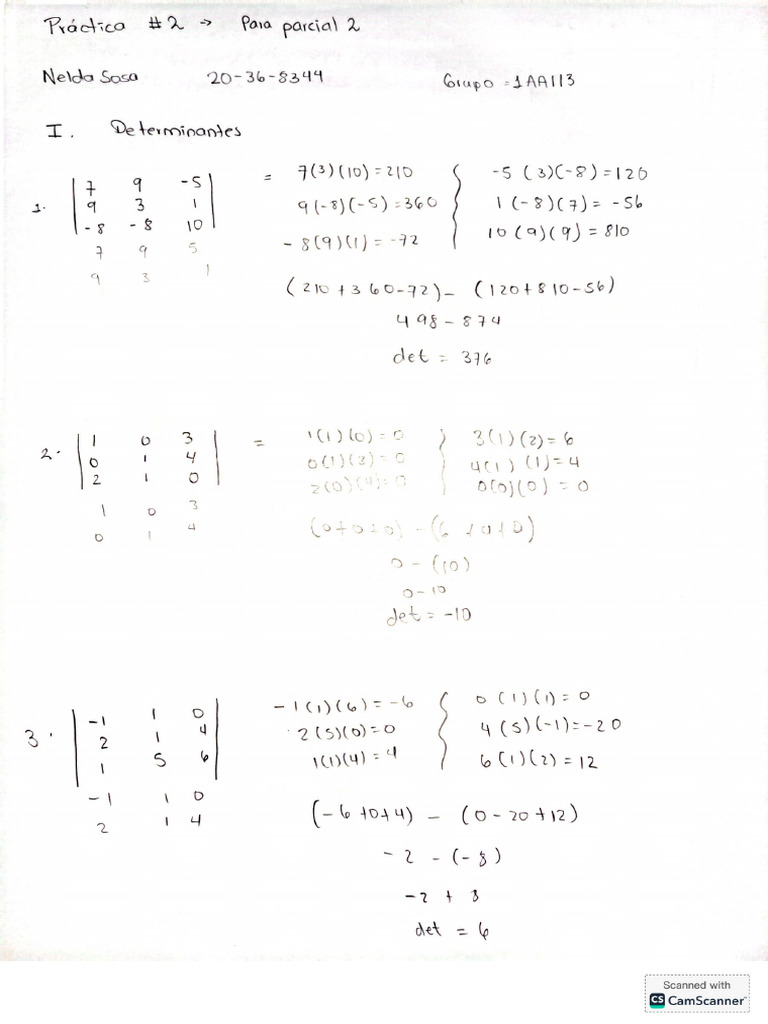 Práctica #2 → Para parcial 2
Nelda Sosa 20-36-8344 Grupo = 1AA113
I. Determinantes
1. | 7 9 -5 | = 7(3)(10)=210 -5(3)(-8)=120
| 9 3 1 | 9(-8)(-5)=360 1(-8)(7)=-56
| -8 -8 10 | -8(9)(1)=-72 10(9)(9)=810
7 9 5
9 3 1
(210+360-72)-(120+810-56)
498-874
det = 376
2. | 1 0 3 | = 1(1)(0)=0 3(1)(2)=6
| 0 1 4 | 0(1)(3)=0 4(1)(1)=4
| 2 1 0 | 2(0)(4)=0 0(0)(0)=0
1 0 3
0 1 4
(0+0+0)-(6+4+0)
0-(10)
0-10
det = -10
3. | -1 1 0 | -1(1)(6)=-6 0(1)(1)=0
| 2 1 4 | 2(5)(0)=0 4(5)(-1)=-20
| 1 5 6 | 1(1)(4)=4 6(1)(2)=12
-1 1 0
2 1 4
(-6+0+4) - (0-20+12)
-2 - (-8)
-2 + 8
det = 6
Scanned with
CS CamScanner